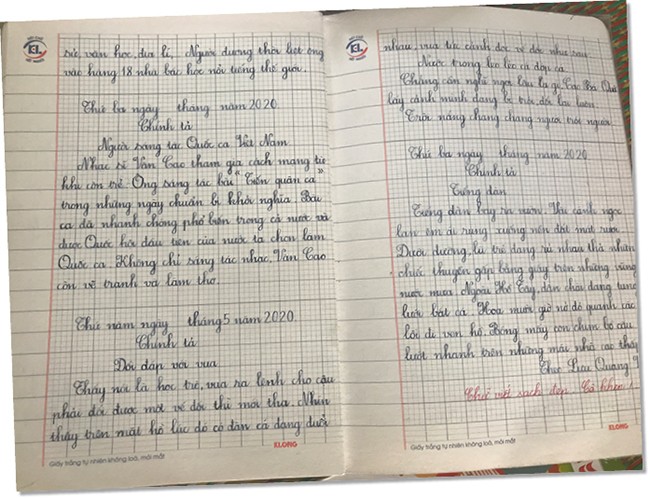 sử, văn học, địa lí... Người đương thời liệt ông
vào hàng 18 nhà bác học nổi tiếng thế giới.
Thứ ba ngày tháng năm 2020
Chính tả
Người sáng tác Quốc ca Việt Nam
Nhạc sĩ Văn Cao tham gia cách mạng từ
khi còn trẻ. Ông sáng tác bài "Tiến quân ca"
trong những ngày chuẩn bị khởi nghĩa. Bài
ca đã nhanh chóng phổ biến trong cả nước và
được Quốc hội đầu tiên của nước ta chọn làm
Quốc ca. Không chỉ sáng tác nhạc, Văn Cao
còn vẽ tranh và làm thơ.
Thứ năm ngày tháng 5 năm 2020
Chính tả
Đối đáp với vua
Thấy nói là học trò, vua ra lệnh cho cậu
phải đối được một vế đối thì mới tha. Nhìn
thấy trên mặt hồ lúc đó có đàn cá đang đuổi
KLONG
Giấy trắng tự nhiên không loá, mỏi mắt
nhau, vua tức cảnh đọc vế đối như sau:
Nước trong leo lẻo cá đớp cá
Chẳng cần nghĩ ngợi lâu la gì, Cao Bá Quát
lấy cảnh mình đang bị trói, đối lại luôn:
Trời nắng chang chang người trói người
Thứ ba ngày tháng năm 2020
Chính tả
Tiếng đàn
Tiếng đàn bay ra vườn. Vài cánh ngọc
lan êm ái rụng xuống nền đất mát rượi.
Dưới đường, lũ trẻ đang rủ nhau thả những
chiếc thuyền gấp bằng giấy trên những vũng
nước mưa. Ngoài Hồ Tây, dân chài đang tung
lưới bắt cá. Hoa mười giờ nở đỏ quanh các
lối đi ven hồ. Bóng mấy con chim bồ câu
lướt nhanh trên những mái nhà cao thấp
Theo Lưu Quang
Chữ viết sạch đẹp. Cô khen
KLONG
Giấy trắng tự nhiên không loá, mỏi mắt